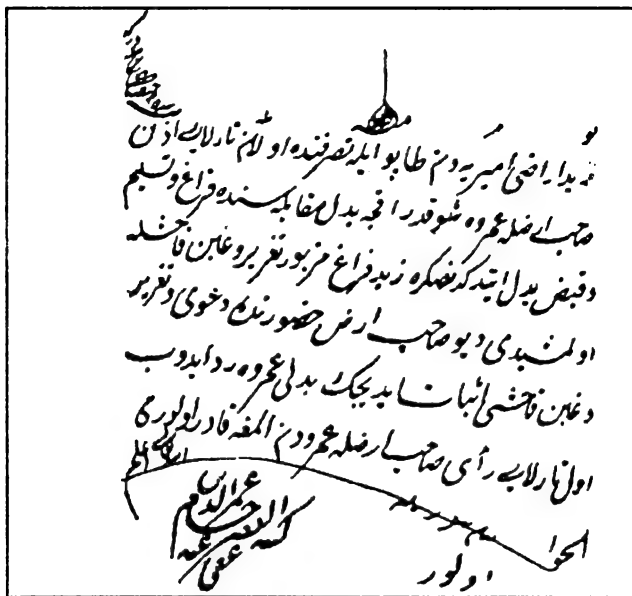 بو
زيد اراضئ اميريه دن طاپو ايله تصرفنده اولان تارلايى اذن
صاحب ارضله عمروه شو قدر اقچه بدل مقابله سنده فراغ و تسليم
و قبض بدل ايتدكدنصكره زيد فراغ مزبور تغرير و غبن فاحشله
اولمشيدى ديو صاحب ارض حضورنده دعوى و تغرير
و غبن فاحشى اثبات ايديجك بدلى عمروه رد ايدوب
اول تارلايى رأى صاحب ارضله عمرودن المغه قادر اولورمى
الجواب
اولور
كتبه الفقير
عفى عنه